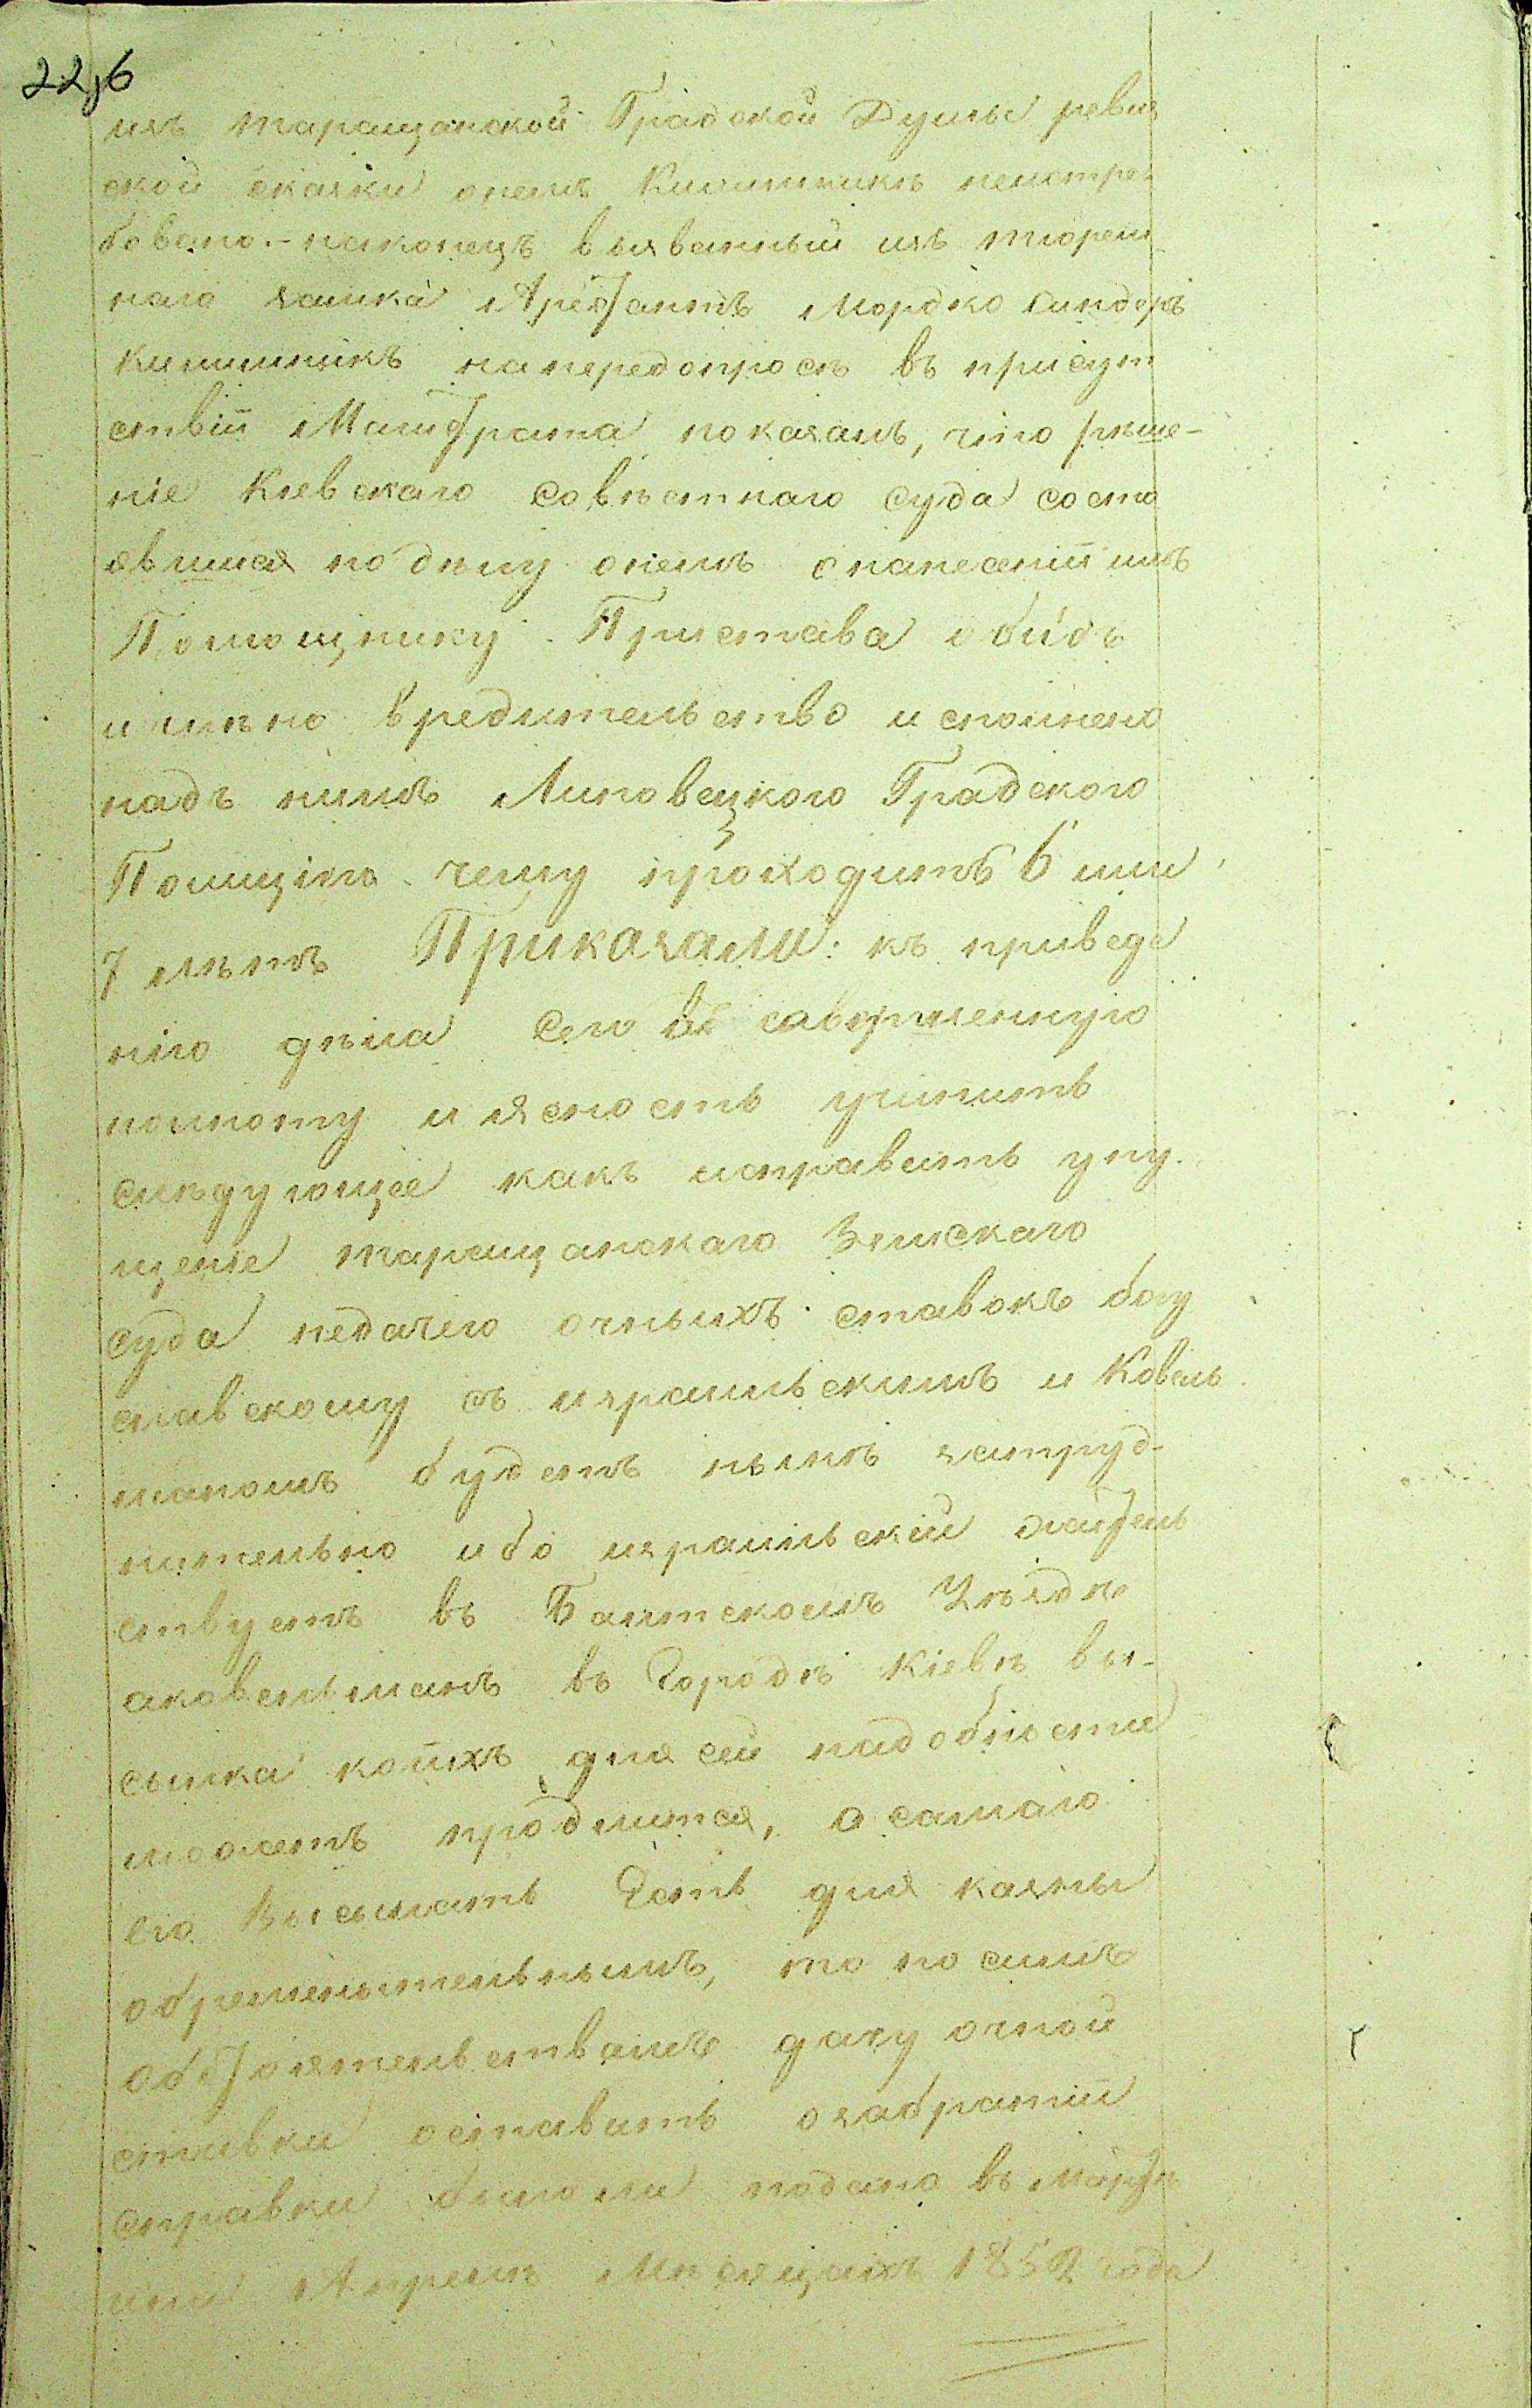 22об
изъ таращанской Градской Думы ревиз
ской сказки онемъ Кишинникѣ неистре-
бовано. - наконецъ вызванный изъ тюрем
наго замка Арестантъ Мордко Синдеръ
Кишинникъ напередопросѣ въ присут
ствіи Магистрата показалъ, что рѣше-
ніе Кіевскаго Совѣстнаго суда состо
явшися подѣлу онемъ онанесеніи имъ
Помощнику Пристава обидъ
и членовредительство исполнено
надъ нимъ Липовецкого Градского
Полицію чему проходитъ 6 или
7 лѣтъ Приказали: къ приведе
нію дѣла сего въ совершенную
полноту и ясность учинить
слѣдующее какъ исправить упу
щеніе таращанскаго Земскаго
суда недачею очныхъ ставокъ богу
славскому съ израильскимъ и Ковель
маномъ будетъ нынѣ затруд-
нительно ибо израильскій жытель
ствуетъ въ Балтскомъ Уѣздѣ
аковельманъ въ Городѣ Кіевѣ вы-
сылка коихъ для сей надобности
можетъ продлится, а самаго
его высылать Есть для казны
обременительнымъ, то по симъ
обстоятельствамъ дачу очной
ставки оставить озабратіи
справки было ли подано въ Мартѣ
или Апрелѣ Мѣсяцахъ 1852 года